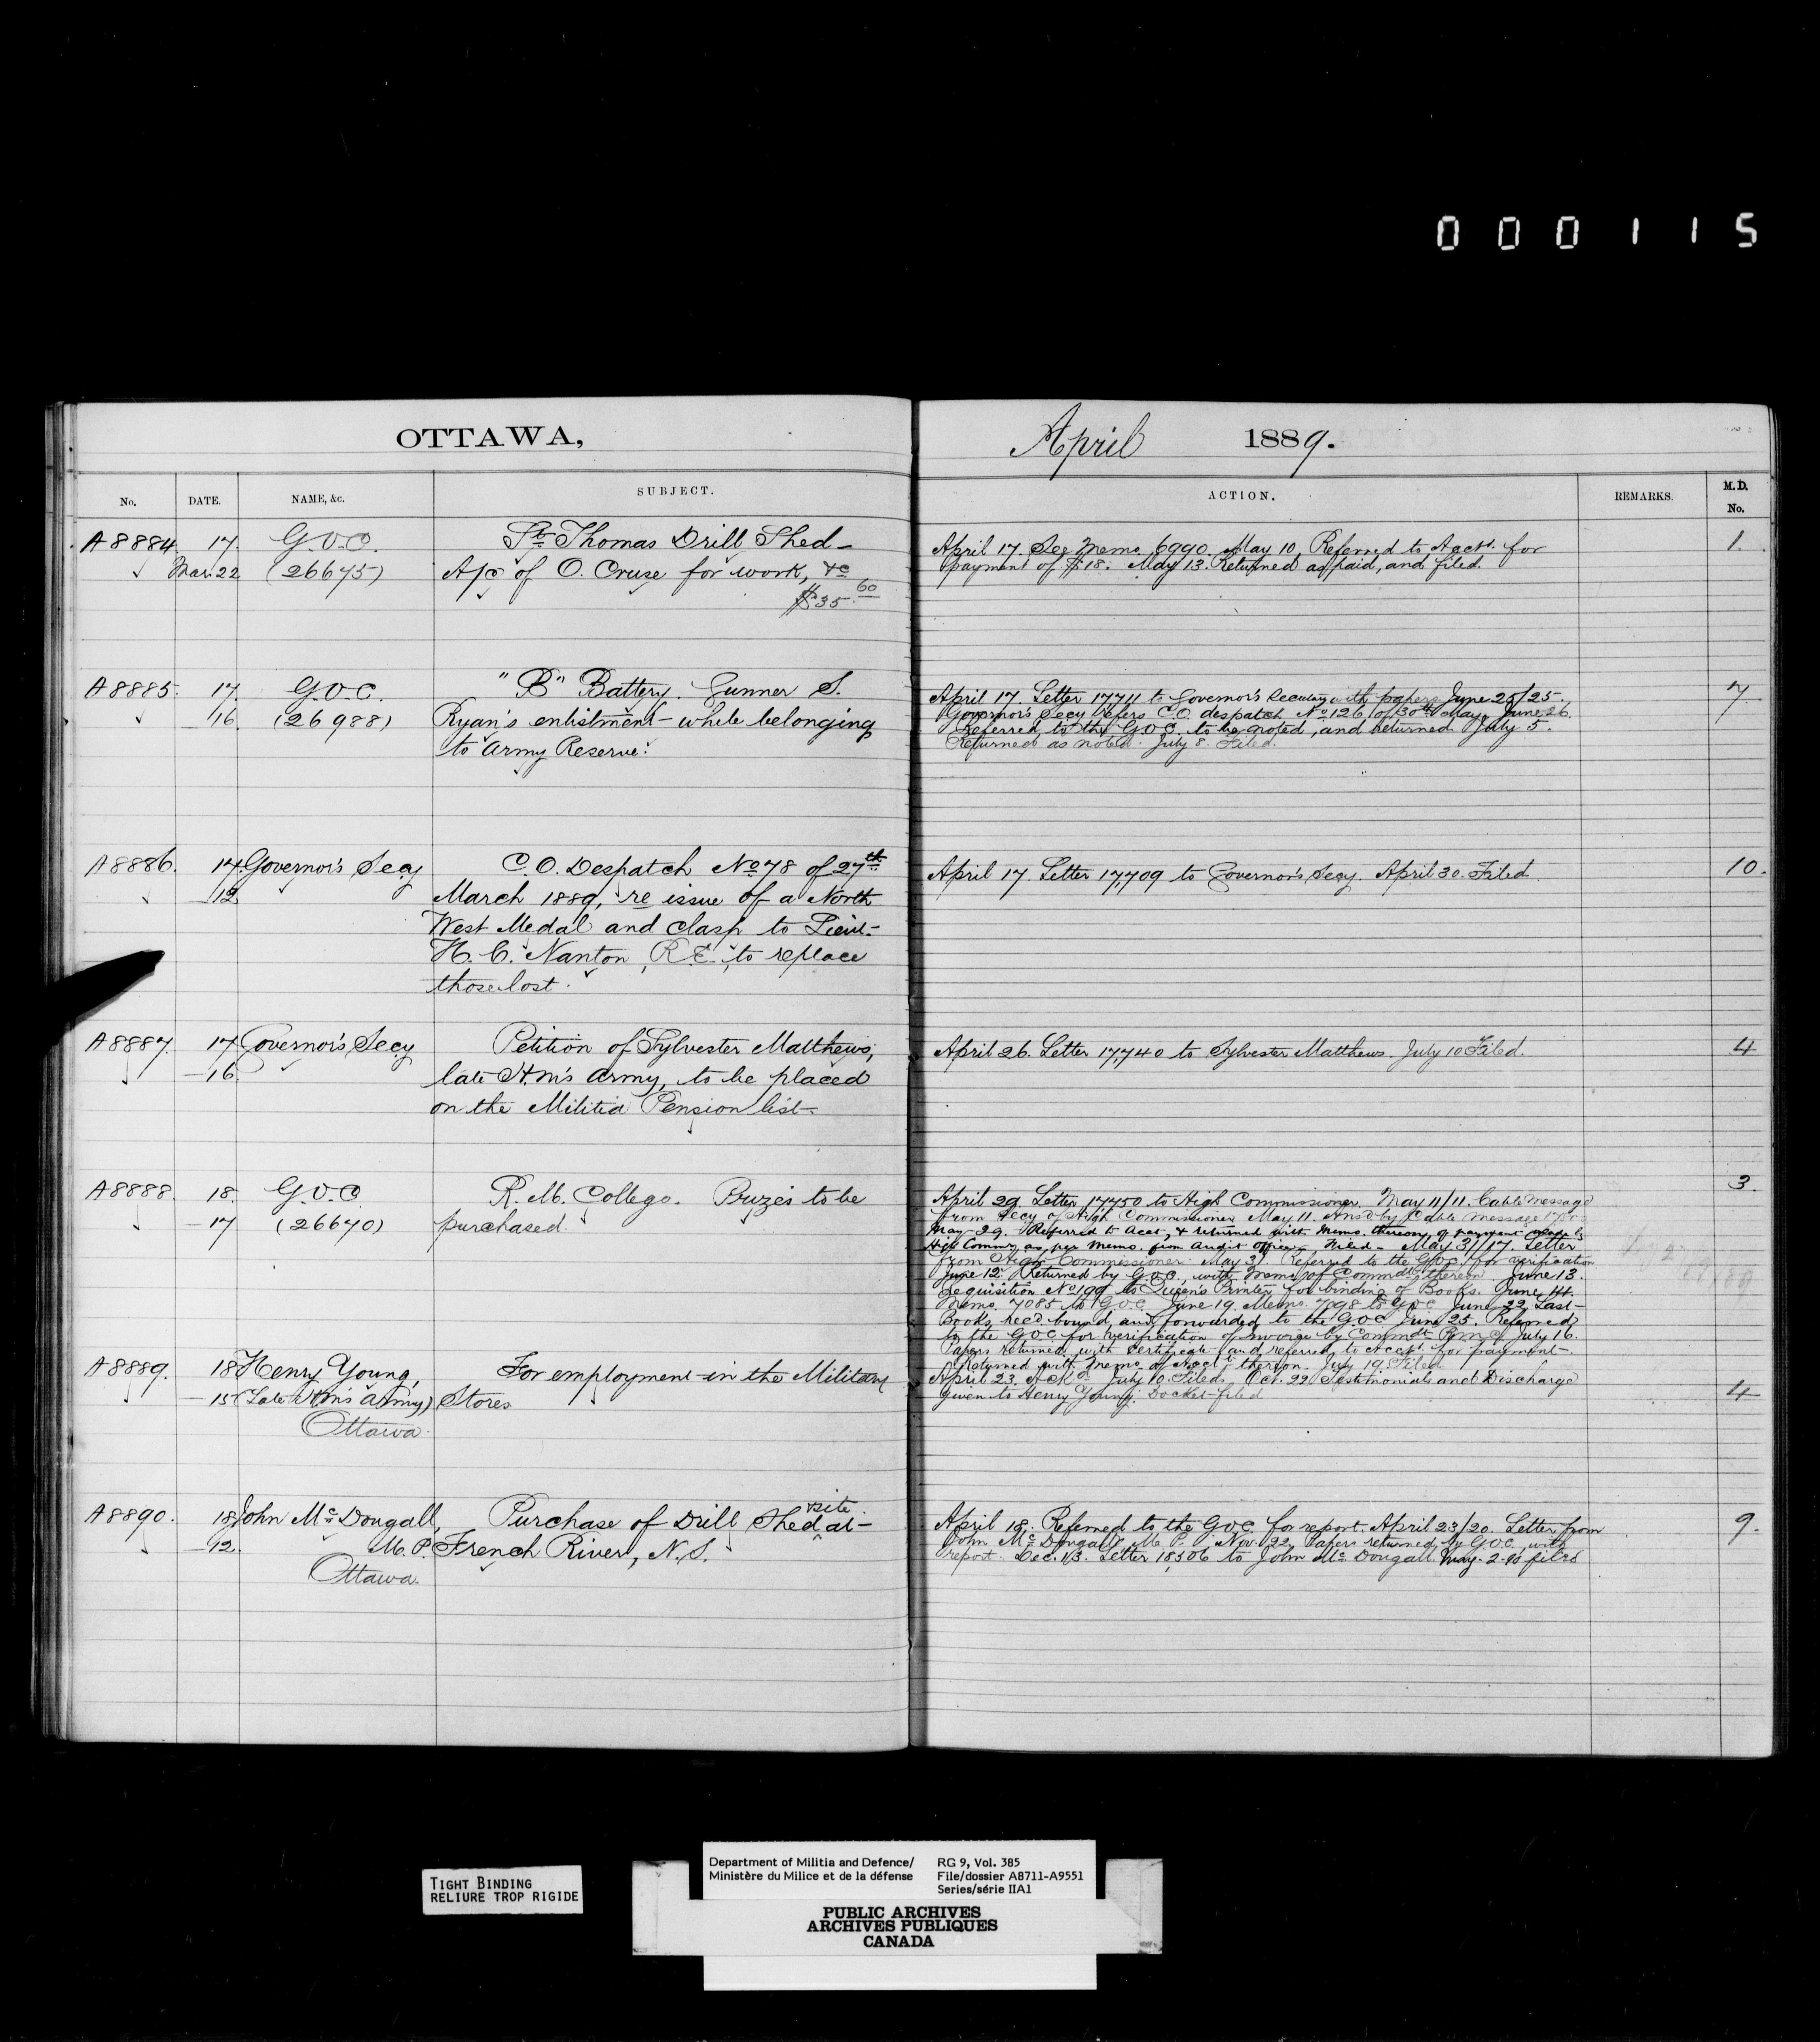 000115
OTTAWA, April 1889.
No. DATE. NAME, &c. SUBJECT. ACTION. REMARKS. M.D. No.
A8884 17. G.O.C. St. Thomas Drill Shed—
Mar. 22 (26675) A/c of O. Cruse for work, &c
$35.60
April 17. See Memo 6990. May 10, Referred to Acct. for
payment of $18. May 13. Returned as paid, and filed.
1.
A8885. 17. G.O.C. "B" Battery. Gunner S.
16 (26988) Ryan's enlistment—while belonging
to Army Reserve.
April 17. Letter 17711 to Governor's Secretary with papers June 25/25.
Governor's Secy refers C.O. despatch No 126 of 30th May. June 26.
Referred to the G.O.C. to be noted, and returned July 5.
Returned as noted. July 8. Filed.
7.
A8886. 17. Governor's Secy C.O. Despatch No 78 of 27th
12 March 1889, re issue of a North
West Medal and clasp to Lieut.
H. C. Nanton, R.E., to replace
those lost.
April 17. Letter 17,709 to Governor's Secy. April 30. Filed.
10.
A8887. 17. Governor's Secy Petition of Sylvester Matthews,
—16. late H.M's Army, to be placed
on the Militia Pension list—
April 26. Letter 17,740 to Sylvester Matthews. July 10 Filed.
4
A8888. 18. G.O.C. R. M. College. Prizes to be
—17 (26670) purchased.
April 29. Letter 17,750 to High Commissioner. May 11/11. Cable Message
from Secy of High Commissioner May 11. Ansd by Cable Message
May 29. Referred to Acct, & returned with Memo. thereon, of payment
High Commr, as per Memo. from Audit Office. Filed— May 31/17. Letter
from High Commissioner May 31. Referred to the G.O.C. for verification
June 12. Returned by G.O.C., with Memo of Commdt thereon. June 13.
Requisition No 199 to Queen's Printer for binding of Books. June 14.
Memo. 7085 to G.O.C. June 19. Memo. 7098 to G.O.C. June 22 Last
Books rec'd bound, and forwarded to the G.O.C. June 25. Referred
to the G.O.C. for verification of invoice by Commdt R.M.C. July 16.
Papers returned with Certificate and referred to Acct. for payment—.
Returned with memo of Acct thereon. July 19. Filed
3.
A8889. 18 Henry Young, For employment in the Military
—15 (Late H.M's Army) Stores.
Ottawa.
April 23. Ackd. July 10. Filed. Oct. 22 Testimonials and Discharge
given to Henry Young. Docket filed
4
A8890. 18 John McDougall, Purchase of Drill Shed site at—
—12. M.P. French River, N.S.
Ottawa.
April 18. Referred to the G.O.C. for report. April 23/20. Letter from
John McDougall, M.P. Nov. 22. Papers returned by G.O.C., with
report. Dec. 13. Letter 18506 to John McDougall. May. 2-90 filed
9.
TIGHT BINDING
RELIURE TROP RIGIDE
Department of Militia and Defence/
Ministère du Milice et de la défense
RG 9, Vol. 385
File/dossier A8711-A9551
Series/série IIA1
PUBLIC ARCHIVES
ARCHIVES PUBLIQUES
CANADA